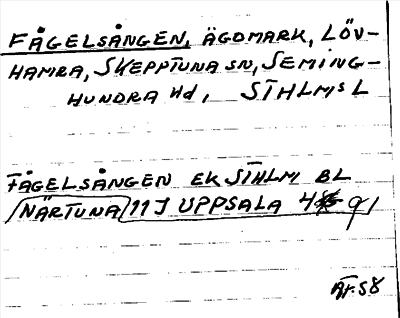 FÅGELSÅNGEN, ÄGOMARK, LÖV-
HAMRA, SKEPPTUNA SN, SEMING-
HUNDRA Hd, STHLMS L
FÅGELSÅNGEN EK STHLM BL
NÄRTUNA 11 J UPPSALA 4 91
Är. 58